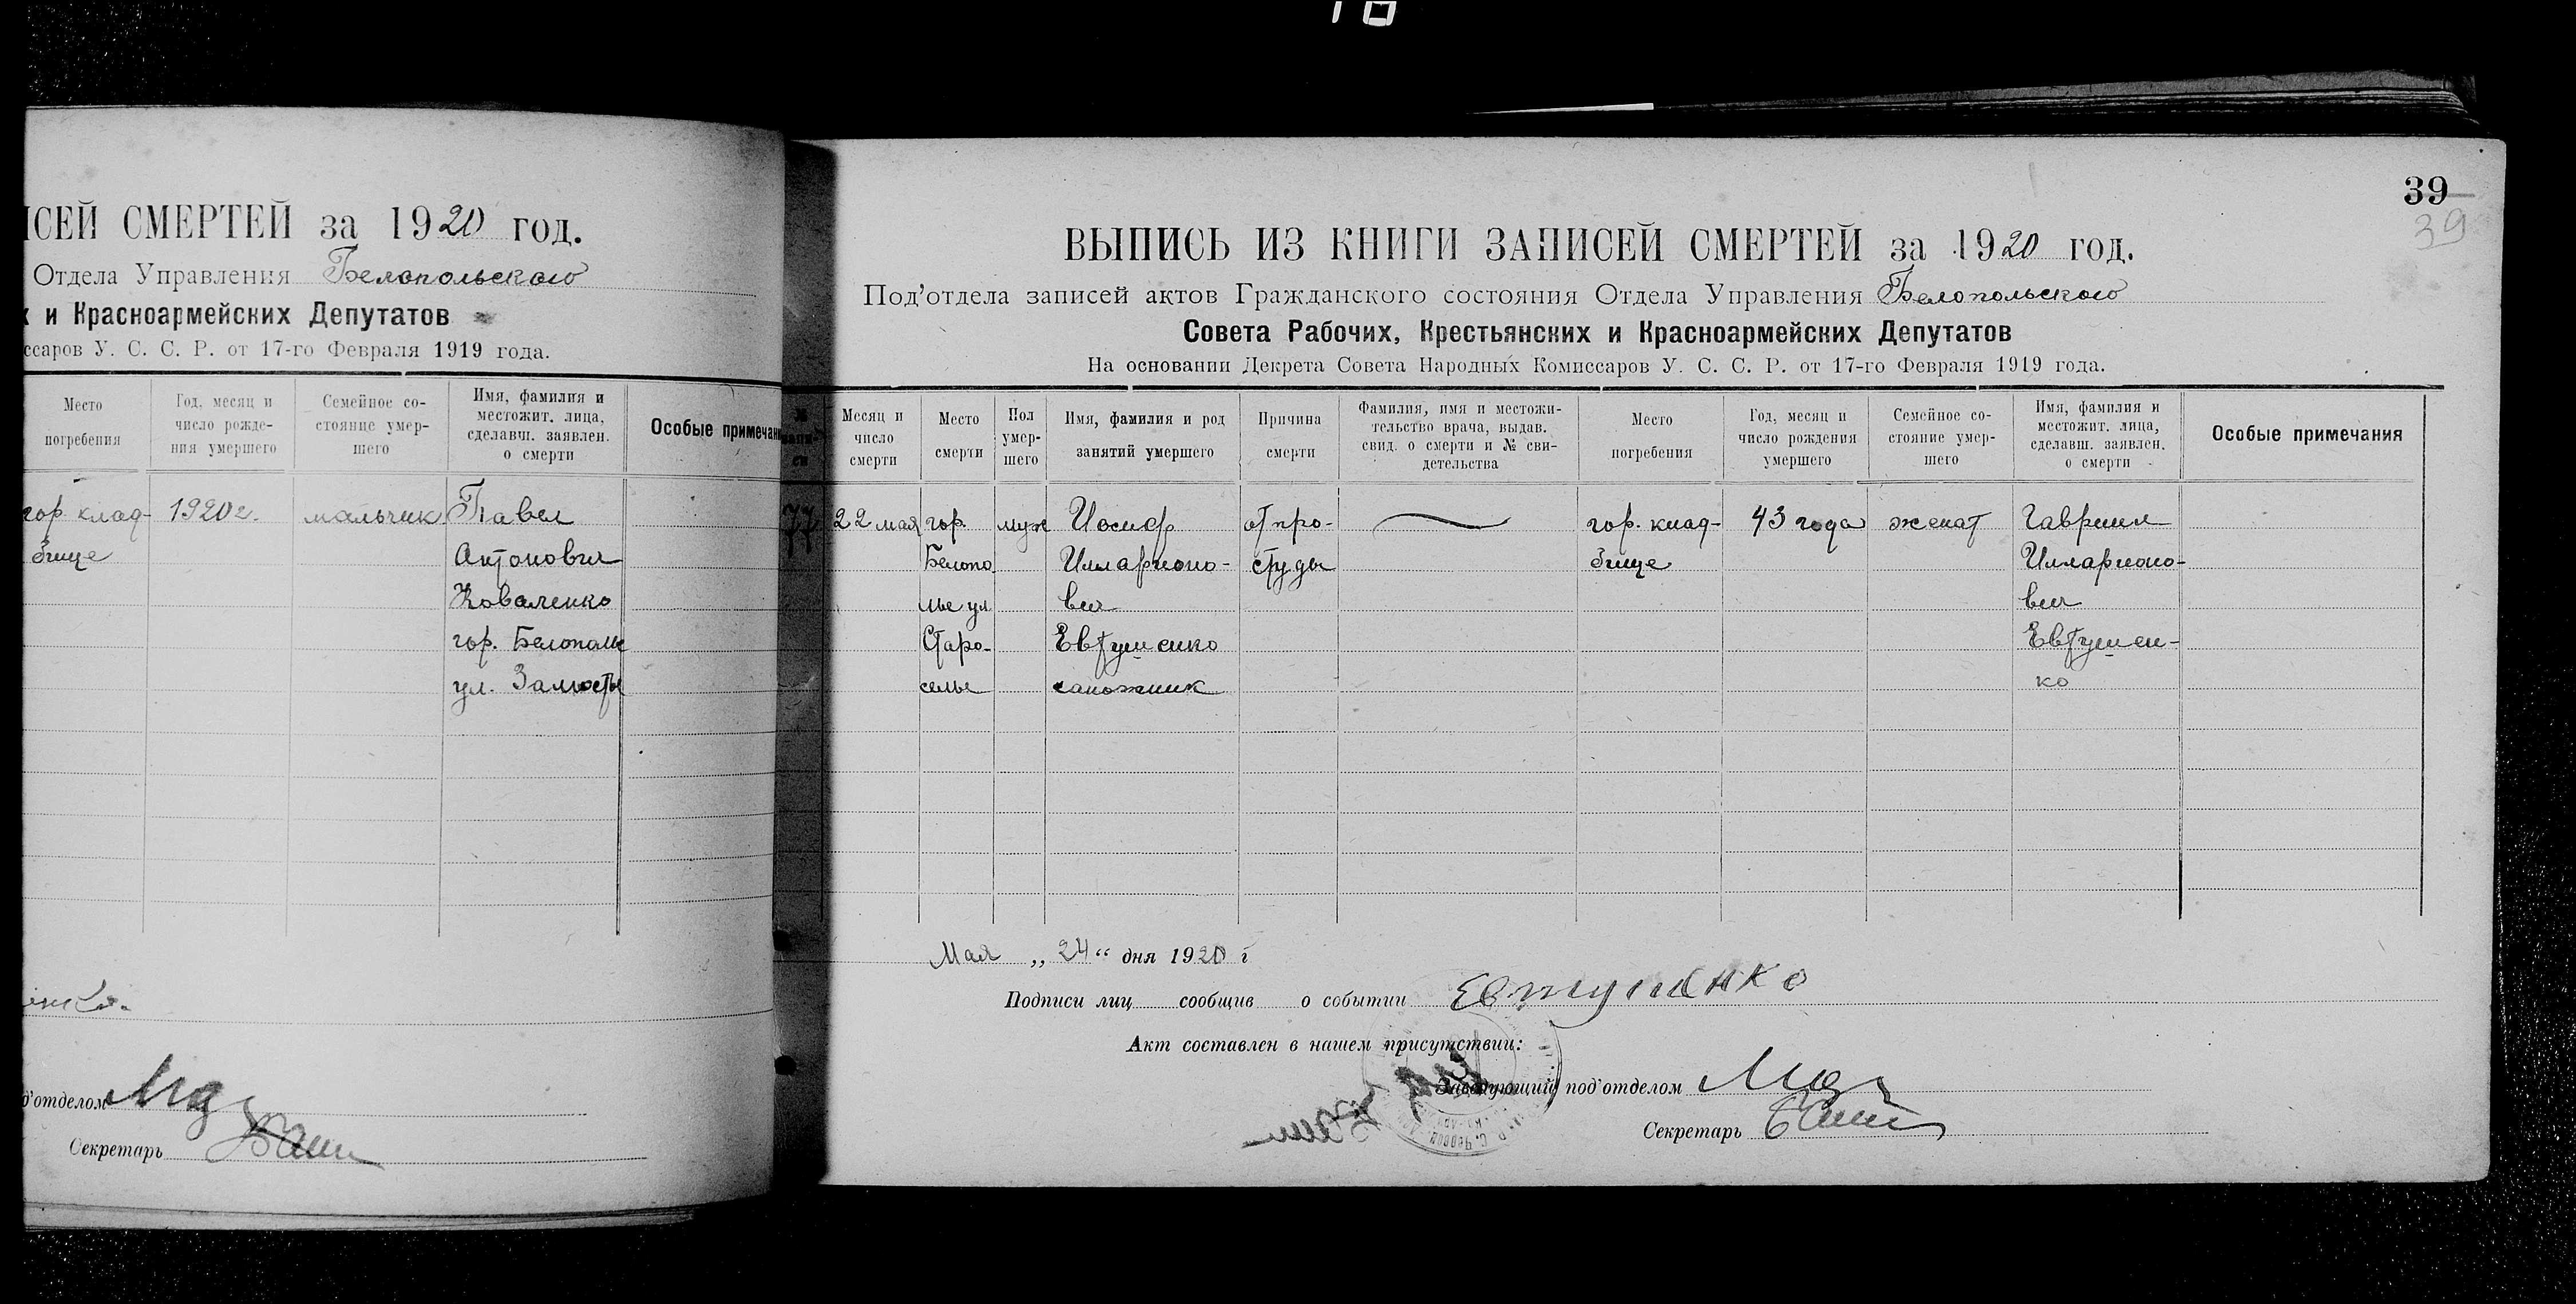 ИСЕЙ СМЕРТЕЙ за 1920 год.
Отдела Управления Белопольского
и Красноармейских Депутатов
ссаров У. С. С. Р. от 17-го Февраля 1919 года.
Место погребения
Год, месяц и число рожде-ния умершего
Семейное со-стояние умер-шего
Имя, фамилия и местожит. лица, сделавш. заявлен. о смерти
Особые примечан
гор. клад- 1920 г. мальчик Павел
бище Антонович
Коваленко
гор. Белополье
ул.
д'отделом
Секретарь
39
39
ВЫПИСЬ ИЗ КНИГИ ЗАПИСЕЙ СМЕРТЕЙ за 1920 год.
Под'отдела записей актов Гражданского состояния Отдела Управления Белопольского
Совета Рабочих, Крестьянских и Красноармейских Депутатов
На основании Декрета Совета Народных Комиссаров У. С. С. Р. от 17-го Февраля 1919 года.
№ запи-си
Месяц и число смерти
Место смерти
Пол умер-шего
Имя, фамилия и род занятий умершего
Причина смерти
Фамилия, имя и местожи-тельство врача, выдав. свид. о смерти и № сви-детельства
Место погребения
Год, месяц и число рождения умершего
Семейное со-стояние умер-шего
Имя, фамилия и местожит. лица, сделавш. заявлен. о смерти
Особые примечания
77 22 мая гор. муж Иосиф от про- гор. клад- 43 года женат Гавриил
Белопо Илларионо- студы бище Илларионо-
лье ул. вич вич
Старо- Евтушенко Евтушен-
селье сапожник ко
Мая „24“ дня 1920 г
Подписи лиц сообщив о событии Евтушенко
Акт составлен в нашем присутствии:
Заведующий под'отделом
Секретарь